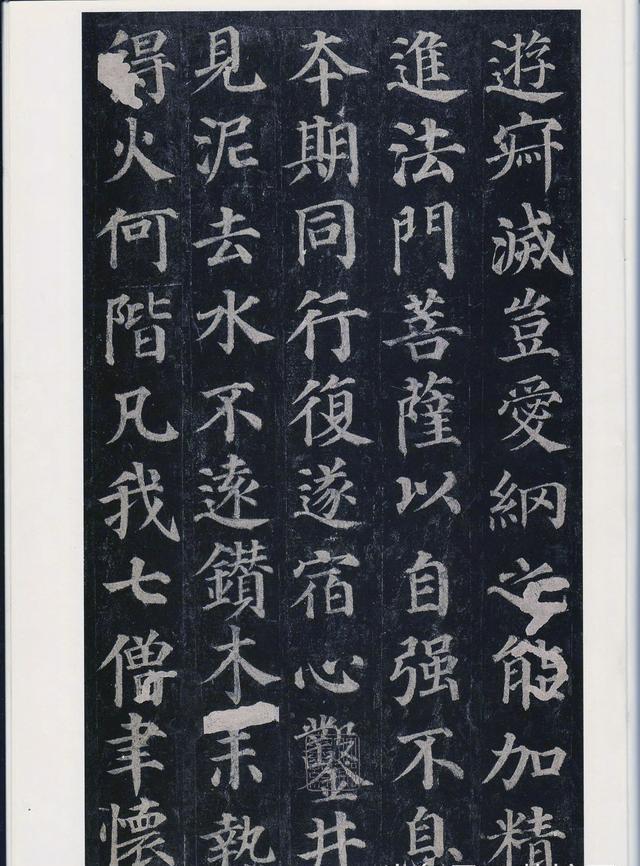 遊寂滅豈愛網之能加精
進法門菩薩以自强不息
本期同行復遂宿心鑿井
見泥去水不遠鑽木未熱
得火何階凡我七僧聿懷